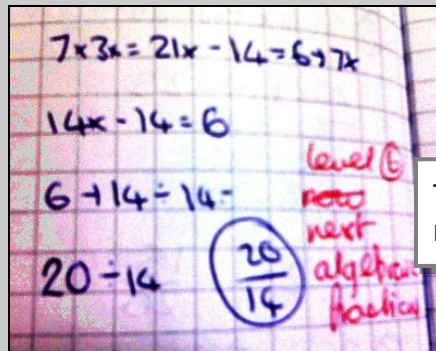 7x3x = 21x - 14 = 6+7x
14x - 14 = 6
6 + 14 ÷ 14 =
20 ÷ 14
20
14
level 6
next
algebraic
fraction